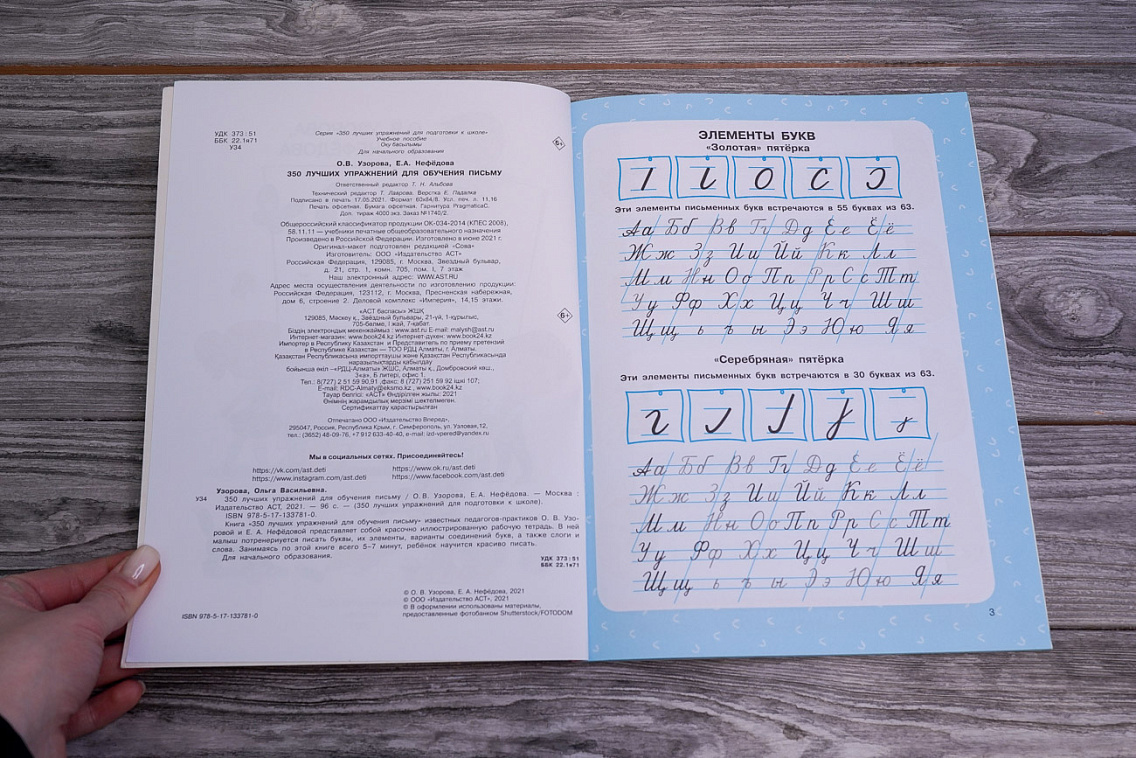 УДК 373:51
ББК 22.1я71
У34
Серия «350 лучших упражнений для подготовки к школе»
Учебное пособие
Оқу басылымы
Для начального образования
6+
О.В. Узорова, Е.А. Нефёдова
350 ЛУЧШИХ УПРАЖНЕНИЙ ДЛЯ ОБУЧЕНИЯ ПИСЬМУ
Ответственный редактор Т. Н. Альбова
Технический редактор Т. Лаврова. Верстка Е. Падалка
Подписано в печать 17.05.2021. Формат 60х84/8. Усл. печ. л. 11,16
Печать офсетная. Бумага офсетная. Гарнитура PragmaticaC.
Доп. тираж 4000 экз. Заказ №1740/2.
Общероссийский классификатор продукции ОК-034-2014 (КПЕС 2008),
58.11.11 — учебники печатные общеобразовательного назначения
Произведено в Российской Федерации. Изготовлено в июне 2021 г.
Оригинал-макет подготовлен редакцией «Сова»
Изготовитель: ООО «Издательство АСТ»
Российская Федерация, 129085, г. Москва, Звездный бульвар,
д. 21, стр. 1, комн. 705, пом. I, 7 этаж
Наш электронный адрес: WWW.AST.RU
Адрес места осуществления деятельности по изготовлению продукции:
Российская Федерация, 123112, г. Москва, Пресненская набережная,
дом 6, строение 2. Деловой комплекс «Империя», 14,15 этажи.
«АСТ баспасы» ЖШҚ
129085, Мәскеу қ., Звёздный бульвары, 21-үй, 1-құрылыс,
705-бөлме, I жай, 7-қабат.
6+
Біздің электрондық мекенжаймыз : www.ast.ru E-mail: malysh@ast.ru
Интернет-магазин: www.book24.kz Интернет-дүкен: www.book24.kz
Импортер в Республику Казахстан и Представитель по приему претензий
в Республике Казахстан — ТОО РДЦ Алматы, г. Алматы.
Қазақстан Республикасына импорттаушы және Қазақстан Республикасында
наразылықтарды қабылдау
бойынша өкіл –«РДЦ-Алматы» ЖШС, Алматы қ., Домбровский көш.,
3«а», Б литері, офис 1.
Тел.: 8(727) 2 51 59 90,91 ,факс: 8 (727) 251 59 92 ішкі 107;
E-mail: RDC-Almaty@eksmo.kz , www.book24.kz
Тауар белгісі: «АСТ» Өндірілген жылы: 2021
Өнімнің жарамдылық мерзімі шектелмеген.
Сертификаттау қарастырылған
Отпечатано ООО «Издательство Вперед»,
295047, Россия, Республика Крым, г. Симферополь, ул. Узловая,12,
тел.: (3652) 48-09-76, +7 912 633-40-40, e-mail: izd-vpered@yandex.ru
Мы в социальных сетях. Присоединяйтесь!
https://vk.com/ast.deti https://www.ok.ru/ast.deti
https://www.instagram.com/ast.deti https://www.facebook.com/ast.deti
Узорова, Ольга Васильевна.
У34 350 лучших упражнений для обучения письму / О.В. Узорова, Е.А. Нефёдова. — Москва :
Издательство АСТ, 2021. — 96 с. — (350 лучших упражнений для подготовки к школе).
ISBN 978-5-17-133781-0.
Книга «350 лучших упражнений для обучения письму» известных педагогов-практиков О. В. Узо-
ровой и Е. А. Нефёдовой представляет собой красочно иллюстрированную рабочую тетрадь. В ней
малыш потренируется писать буквы, их элементы, варианты соединений букв, а также слоги и
слова. Занимаясь по этой книге всего 5–7 минут, ребёнок научится красиво писать.
Для начального образования.
УДК 373:51
ББК 22.1я71
© О. В. Узорова, Е. А. Нефёдова, 2021
© ООО «Издательство АСТ», 2021
© В оформлении использованы материалы,
предоставленные фотобанком Shutterstock/FOTODOM
ISBN 978-5-17-133781-0
ЭЛЕМЕНТЫ БУКВ
«Золотая» пятёрка
Эти элементы письменных букв встречаются в 55 буквах из 63.
Аа Бб Вв Гг Дд Ее Ёё
Жж Зз Ии Йй Кк Лл
Мм Нн Оо Пп Рр Сс Тт
Уу Фф Хх Цц Чч Шш
Щщ ь ъ ы Ээ Юю Яя
«Серебряная» пятёрка
Эти элементы письменных букв встречаются в 30 буквах из 63.
Аа Бб Вв Гг Дд Ее Ёё
Жж Зз Ии Йй Кк Лл
Мм Нн Оо Пп Рр Сс Тт
Уу Фф Хх Цц Чч Шш
Щщ ь ъ ы Ээ Юю Яя
3